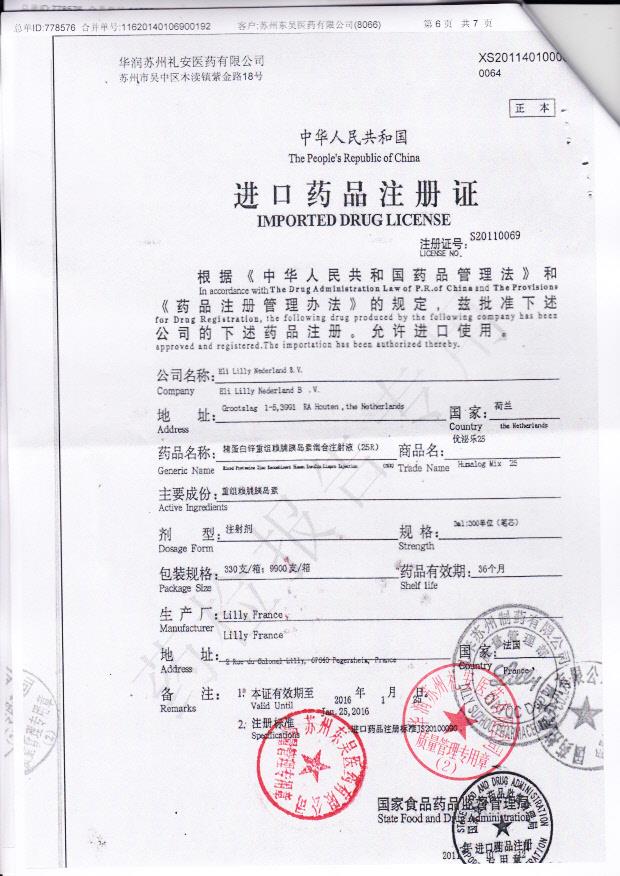 总单ID:778576 合并单号:11620140106900192 客户:苏州东吴医药有限公司(8066) 第 6 页 共 7 页
华润苏州礼安医药有限公司
苏州市吴中区木渎镇紫金路18号
0064
正 本
中华人民共和国
The People's Republic of China
进口药品注册证
IMPORTED DRUG LICENSE
注册证号: S20110069
LICENSE NO.
根据《中华人民共和国药品管理法》和
In accordance with The Drug Administration Law of P.R.of China and The Provisions
《药品注册管理办法》的规定，兹批准下述
for Drug Registration, the following drug produced by the following company has been
公司的下述药品注册。允许进口使用。
approved and registered.The importation has been authorized thereby.
公司名称: Eli Lilly Nederland B.V.
Company Eli Lilly Nederland B .V.
地 址: Grootslag 1-5,3991 RA Houten ,the Netherlands 国 家: 荷兰
Address Country the Netherlands
优泌乐25
药品名称: 精蛋白锌重组赖脯胰岛素混合注射液 (25R) 商品名:
Generic Name Mixed Protamine Zinc Recombinant Human Insulin Lispro Injection (25R) Trade Name Humalog Mix 25
主要成份: 重组赖脯胰岛素
Active Ingredients
剂 型: 注射剂 规 格: 3ml:300单位 (笔芯)
Dosage Form Strength
包装规格: 330支/箱; 9900支/箱 药品有效期: 36个月
Package Size Shelf life
生 产 厂: Lilly France
Manufacturer Lilly France
地 址: 2 Rue du Colonel Lilly, 67640 Fegersheim, France 国 家: 法国
Address Country France
备 注: 1. 本证有效期至 2016 年 1 月
Remarks Valid Until Jan,25,2016
2. 注册标准 进口药品注册标准JS20100090
Specifications
苏州东吴医药有限公司
质量管理专用章
(2)
国家食品药品监督管理局
State Food and Drug Administration
进口药品注册
专用章